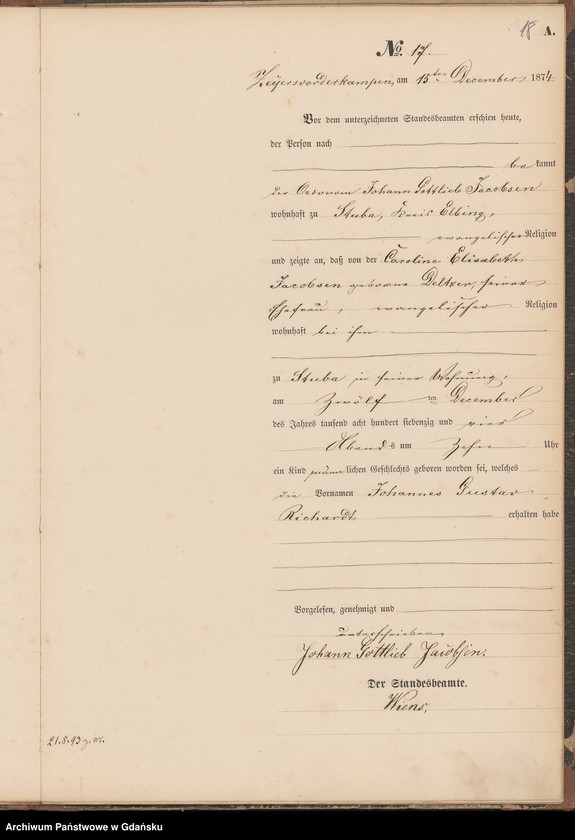 18 A.
No. 17.
Zeyersvorderkampen, am 15ten December 1874.
Vor dem unterzeichneten Standesbeamten erschien heute,
der Person nach
be kannt
der Oeconom Johann Gottlieb Jacobsen
wohnhaft zu Stuba, Kreis Elbing,
evangelischer Religion
und zeigte an, daß von der Caroline Elisabeth
Jacobsen geborene Deltzer, seiner
Ehefrau, evangelischer Religion
wohnhaft bei ihm
zu Stuba in seiner Wohnung,
am Zwölf ten December
des Jahres tausend acht hundert siebenzig und vier
Abends um Zehn Uhr
ein Kind männlichen Geschlechts geboren worden sei, welches
die Vornamen Johannes Gustav
Richardt erhalten habe
Vorgelesen, genehmigt und
unterschrieben
Johann Gottlieb Jacobsen.
Der Standesbeamte.
Wiens,
21.8.93
Archiwum Państwowe w Gdańsku